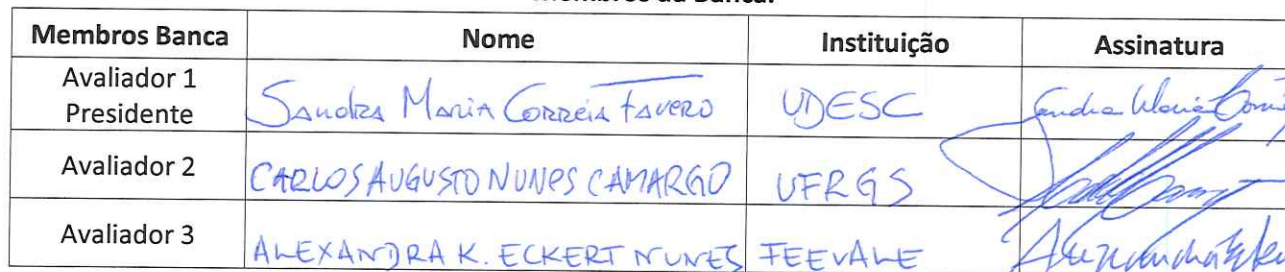 Membros da Banca:
Membros Banca Nome Instituição Assinatura
Avaliador 1
Presidente
Sandra Maria Correia Favero UDESC Sandra Maria Correia
Avaliador 2 CARLOS AUGUSTO NUNES CAMARGO UFRGS
Avaliador 3 ALEXANDRA K. ECKERT NUNES FEEVALE